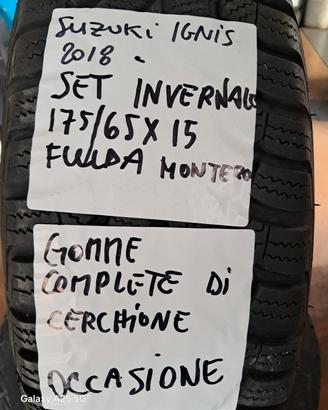 SUZUKI IGNIS
2018.
SET INVERNALE
175/65X15
FULDA MONTERO
GOMME
COMPLETE Di
CERCHiONE
OCCASIONE
Galaxy A25 5G